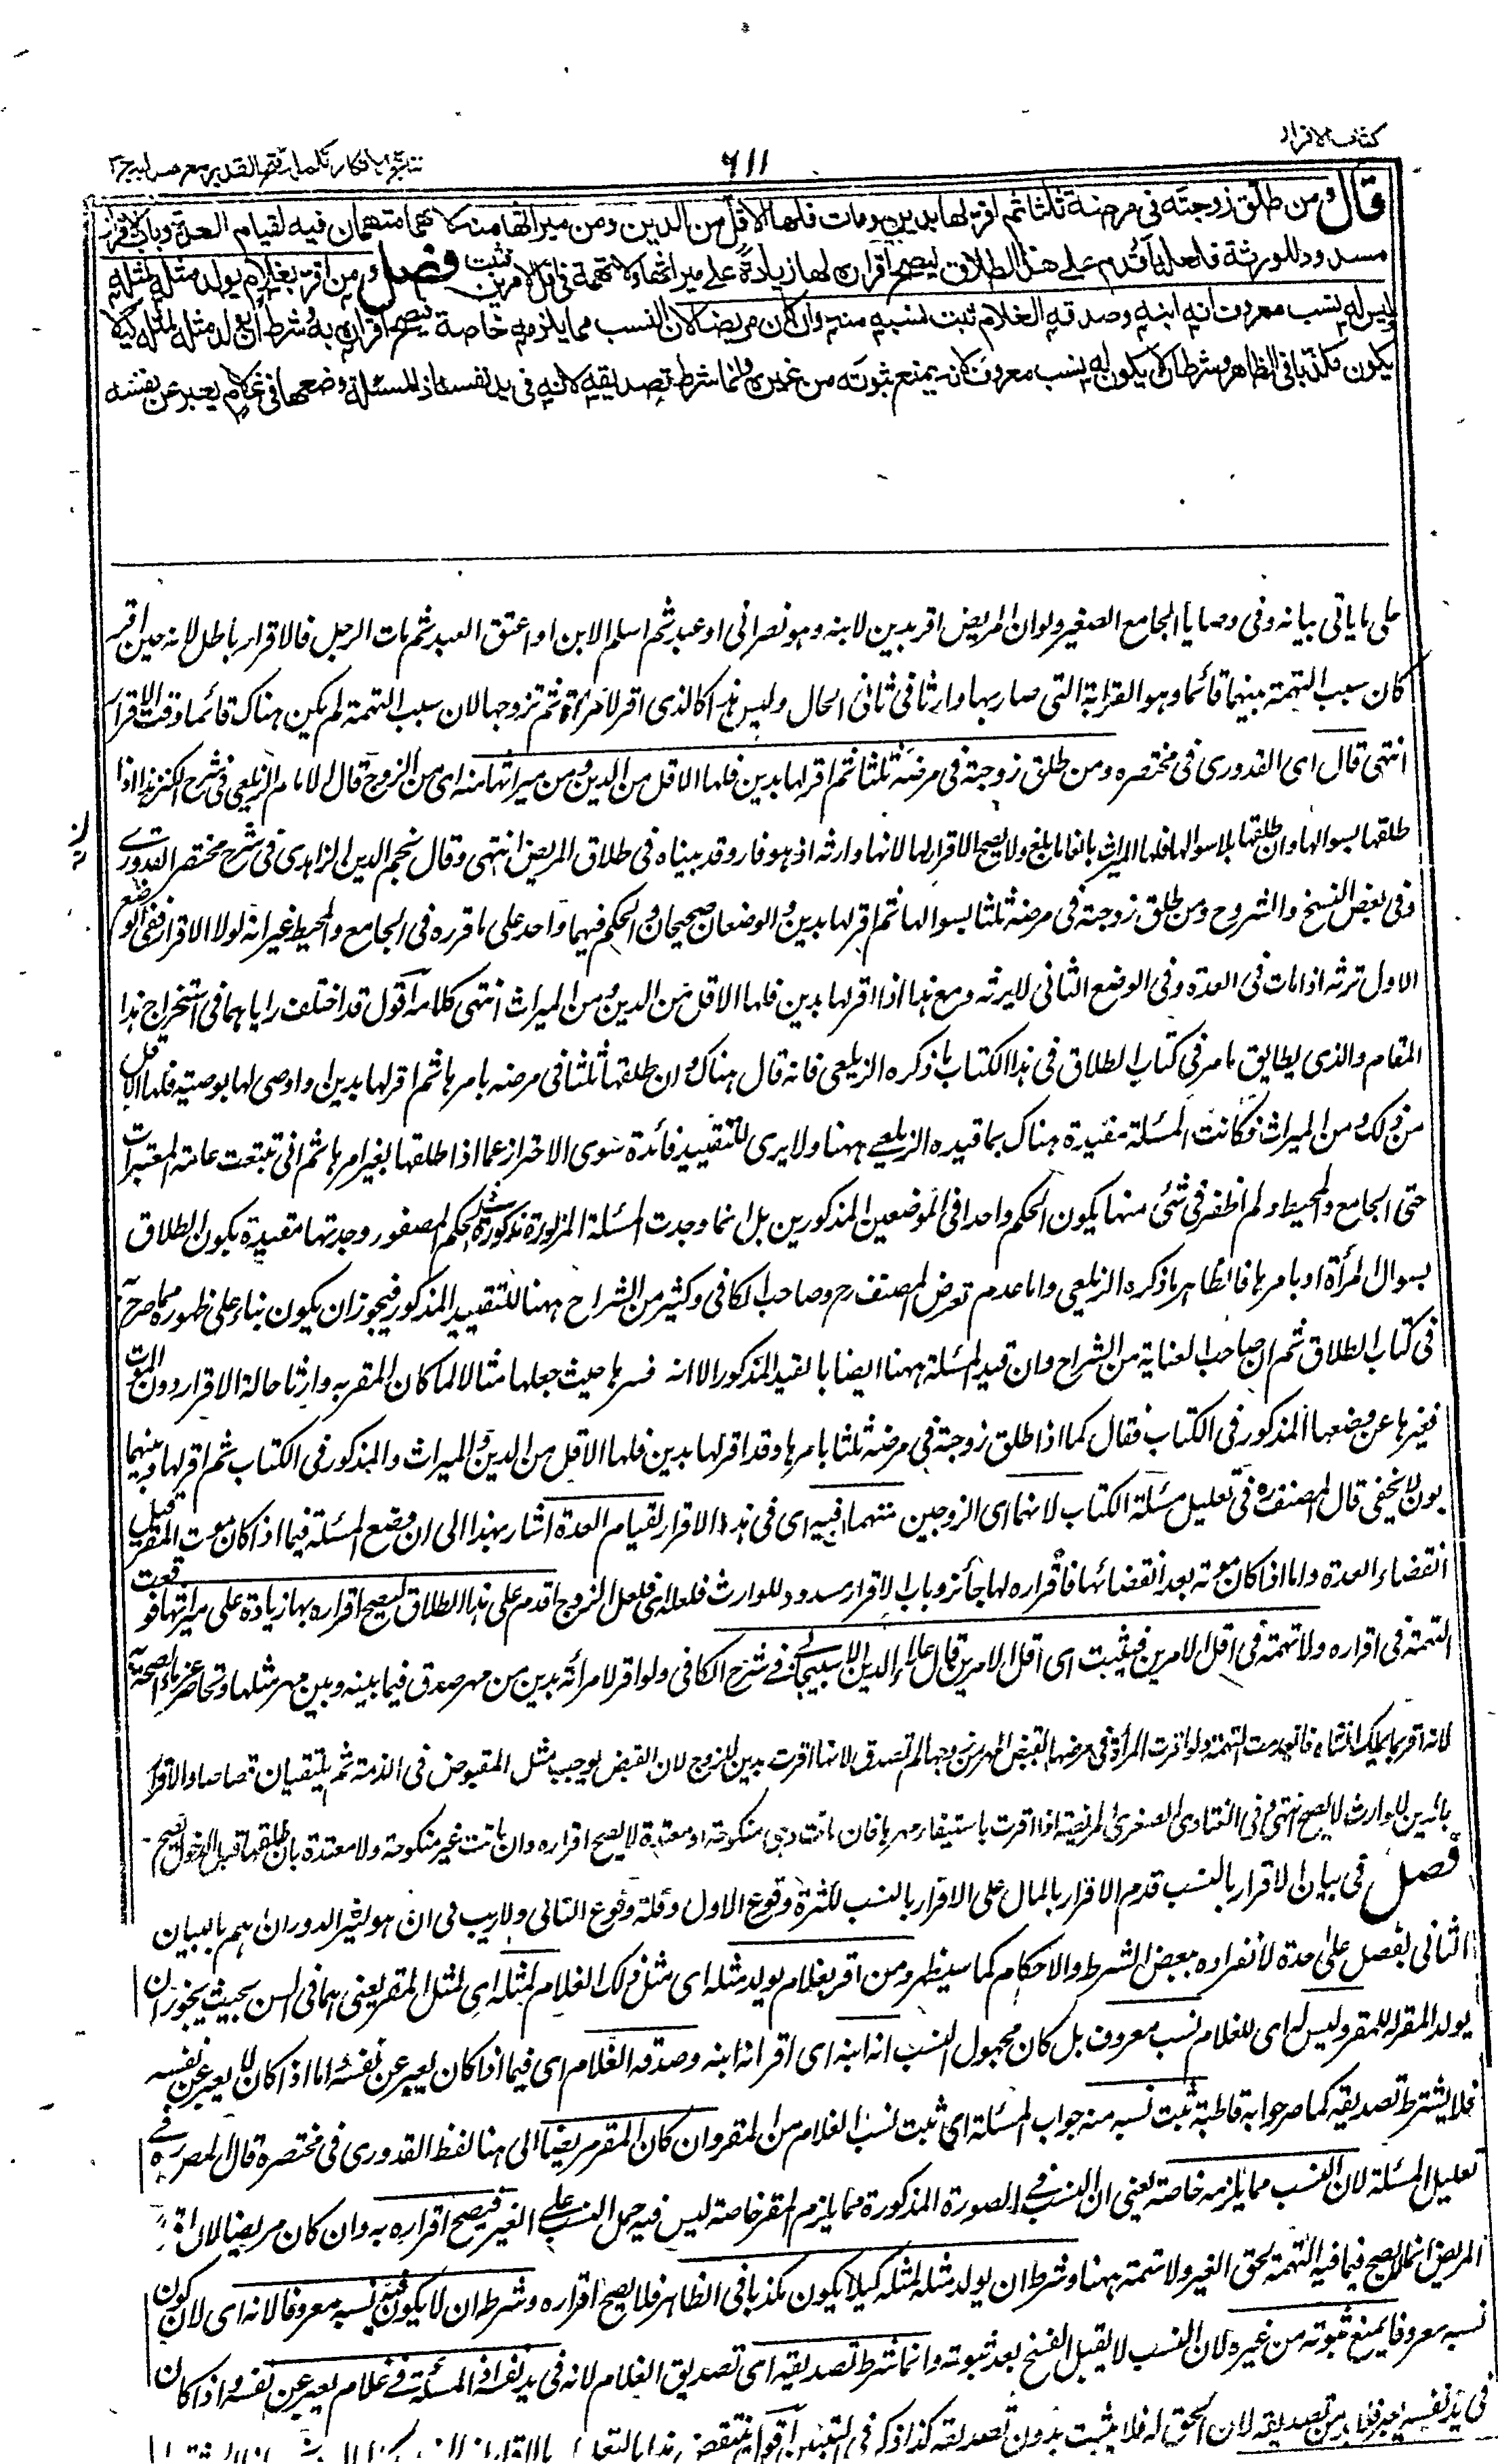 كتاب الاقرار
٦١١
نتائج الافكار تكملة فتح القدير مع هدايه ج٣
قال ومن طلق زوجته فى مرضه ثلثا ثم اقر لها بدين ومات فلها الاقل من الدين ومن ميراثها منه لانهما متهمان فيه لقيام العدة وباب الاقرار
مسدود للورثة فلعله اقدم على هذا الطلاق ليصح اقراره لها زيادة على ميراثها ولا تهمة فى اقل الامرين فثبت فصل ومن اقر بغلام يولد مثله لمثله
وليس له نسب معروف انه ابنه وصدقه الغلام ثبت نسبه منه وان كان مريضا لان النسب مما يلزمه خاصة فيصح اقراره به وشرط ان يولد مثله لمثله كيلا
يكون مكذبا فى الظاهر وشرط ان لا يكون له نسب معروف لانه يمنع ثبوته من غيره وانما شرط تصديقه لانه فى يد نفسه اذ المسئلة وضعها فى غلام يعبر عن نفسه
على ما ياتى بيانه وفى وصايا الجامع الصغير ولو ان المريض اقر بدين لابنه وهو نصرانى او عبد ثم اسلم الابن او اعتق العبد ثم مات الرجل فالاقرار باطل لانه حين اقر
كان سبب التهمة بينهما قائما وهو القرابة التى صار بها وارثا فى ثانى الحال وليس هذا كالذى اقر لامرأة ثم تزوجها لان سبب التهمة لم يكن هناك قائما وقت الاقرار
انتهى قال اى القدورى فى مختصره ومن طلق زوجته فى مرضه ثلثا ثم اقر لها بدين فلها الاقل من الدين ومن ميراثها منه اى من الزوج قال الامام الزيلعى فى شرح الكنز هذا اذا
طلقها بسوالها وان طلقها بلا سوالها فلها الميراث بالغا ما بلغ ولا يصح الاقرار لها لانها وارثة اذ هو فار وقد بيناه فى طلاق المريض انتهى وقال نجم الدين الزاهدى فى شرح مختصر القدورى
وفى بعض النسخ والشروح ومن طلق زوجته فى مرضه ثلثا بسوالها ثم اقر لها بدين والوضعان صحيحان والحكم فيهما واحد على ما قرره فى الجامع والمحيط غير انه لولا الاقرار ففى الوضع
الاول ترثه اذا مات فى العدة وفى الوضع الثانى لا يرثه ومع هذا اذا اقر لها بدين فلها الاقل من الدين ومن الميراث انتهى كلامه اقول قد اختلف رايا هما فى استخراج هذا
المقام والذى يطابق ما مر فى كتاب الطلاق فى هذا الكتاب ما ذكره الزيلعى فانه قال هناك وان طلقها ثلثا فى مرضه بامرها ثم اقر لها بدين او اوصى لها بوصيته فلها الاقل
من ذلك ومن الميراث فكانت المسئلة مقيدة هناك بما قيده الزيلعى ههنا ولا يرى للتقييد فائدة سوى الاحتراز عما اذا طلقها بغير امرها ثم انى تتبعت عامة المعتبرات
حتى الجامع والمحيط ولم اظفر فى شئ منها بكون الحكم واحدا فى الموضعين المذكورين بل انما وجدت المسئلة المزبورة مذكورة بالحكم المسفور وجدتها مقيدة بكون الطلاق
بسوال المرأة او بامرها فالظاهر ما ذكره الزيلعى واما عدم تعرض المصنف رح وصاحب الكافى وكثير من الشراح ههنا للتقييد المذكور فيجوز ان يكون بناء على ظهوره مما صرح به
فى كتاب الطلاق ثم ان صاحب العناية من الشراح وان قيد المسئلة ههنا ايضا بالقيد المذكور الا انه فسرها حيث جعلها مثالا لما كان المقر به وارثا حالة الاقرار دون الموت
فغيرها عن وضعها المذكور فى الكتاب فقال كما اذا طلق زوجته فى مرضه ثلثا بامرها وقد اقر لها بدين فلها الاقل من الدين والميراث والمذكور فى الكتاب ثم اقر لها وبينهما
بون لا يخفى قال المصنف رح فى تعليل مسئلة الكتاب لانهما اى الزوجين متهمان فيه اى فى هذا الاقرار لقيام العدة اشار بهذا الى ان وضع المسئلة فيما اذا كان موت المقر قبل
انقضاء العدة واما اذا كان موته بعد انقضائها فاقراره لها جائز وباب الاقرار مسدود للوارث فلعله اى فلعل الزوج اقدم على هذا الطلاق ليصح اقراره بها زيادة على ميراثها فوقعت
التهمة فى اقراره ولا تهمة فى اقل الامرين فيثبت اى اقل الامرين قال علاء الدين الاسبيجابى فى شرح الكافى ولو اقر لامرأته بدين من مهر صدق فيما بينه وبين مهر مثلها وتحاصص غرماء الصحة
لانه اقر بما يملك انشاءه فانعدمت التهمة ولو اقرت المرأة فى مرضها بقبض المهر من زوجها لم تصدق لانها اقرت بدين للزوج لان القبض يوجب مثل المقبوض فى الذمة ثم يلتقيان قصاصا والاقرار
بالدين للوارث لا يصح انتهى وفى الفتاوى الصغرى المريضة اذا اقرت باستيفاء مهرها فان ماتت وهى منكوحة او معتدة لا يصح اقراره وان ماتت غير منكوحة ولا معتدة بان طلقها قبل الدخول يصح
فصل فى بيان الاقرار بالنسب قدم الاقرار بالمال على الاقرار بالنسب لكثرة وقوع الاول وقلة وقوع الثانى ولا ريب فى ان ما هو كثير الدوران اهم بالبيان
الثانى بفصل على حدة لانفراده ببعض الشرط والاحكام كما سيظهر ومن اقر بغلام يولد مثله اى مثل ذلك الغلام لمثله اى لمثل المقر يعنى هما فى السن بحيث يجوز ان
يولد المقر له للمقر وليس له اى للغلام نسب معروف بل كان مجهول النسب انه ابنه اى اقر انه ابنه وصدقه الغلام اى فيما اذا كان يعبر عن نفسه اما اذا كان لا يعبر عن نفسه
فلا يشترط تصديقه كما صرحوا به قاطبة ثبت نسبه منه جواب المسئلة اى ثبت نسب الغلام من المقر وان كان المقر مريضا الى هنا لفظ القدورى فى مختصره قال المصنف رح فى
تعليل المسئلة لان النسب مما يلزمه خاصة يعنى ان النسب فى الصورة المذكورة مما يلزم المقر خاصة ليس فيه حمل النسب على الغير فيصح اقراره به وان كان مريضا لان اقرار
المريض انما لا يصح فيما فيه التهمة بحق الغير ولا تهمة ههنا وشرط ان يولد مثله لمثله كيلا يكون مكذبا فى الظاهر فلا يصح اقراره وشرط ان لا يكون نسبه معروفا لانه اى لان كون
نسبه معروفا يمنع ثبوته من غيره لان النسب لا يقبل الفسخ بعد ثبوته وانما شرط تصديقه اى تصديق الغلام لانه فى يد نفسه اذ المسئلة فى غلام يعبر عن نفسه واذا كان
فى يد نفسه فلا بد من تصديقه لان الحق له فلا يثبت بدون تصديقه كذا ذكر فى التبيين اقول ينتقض هذا